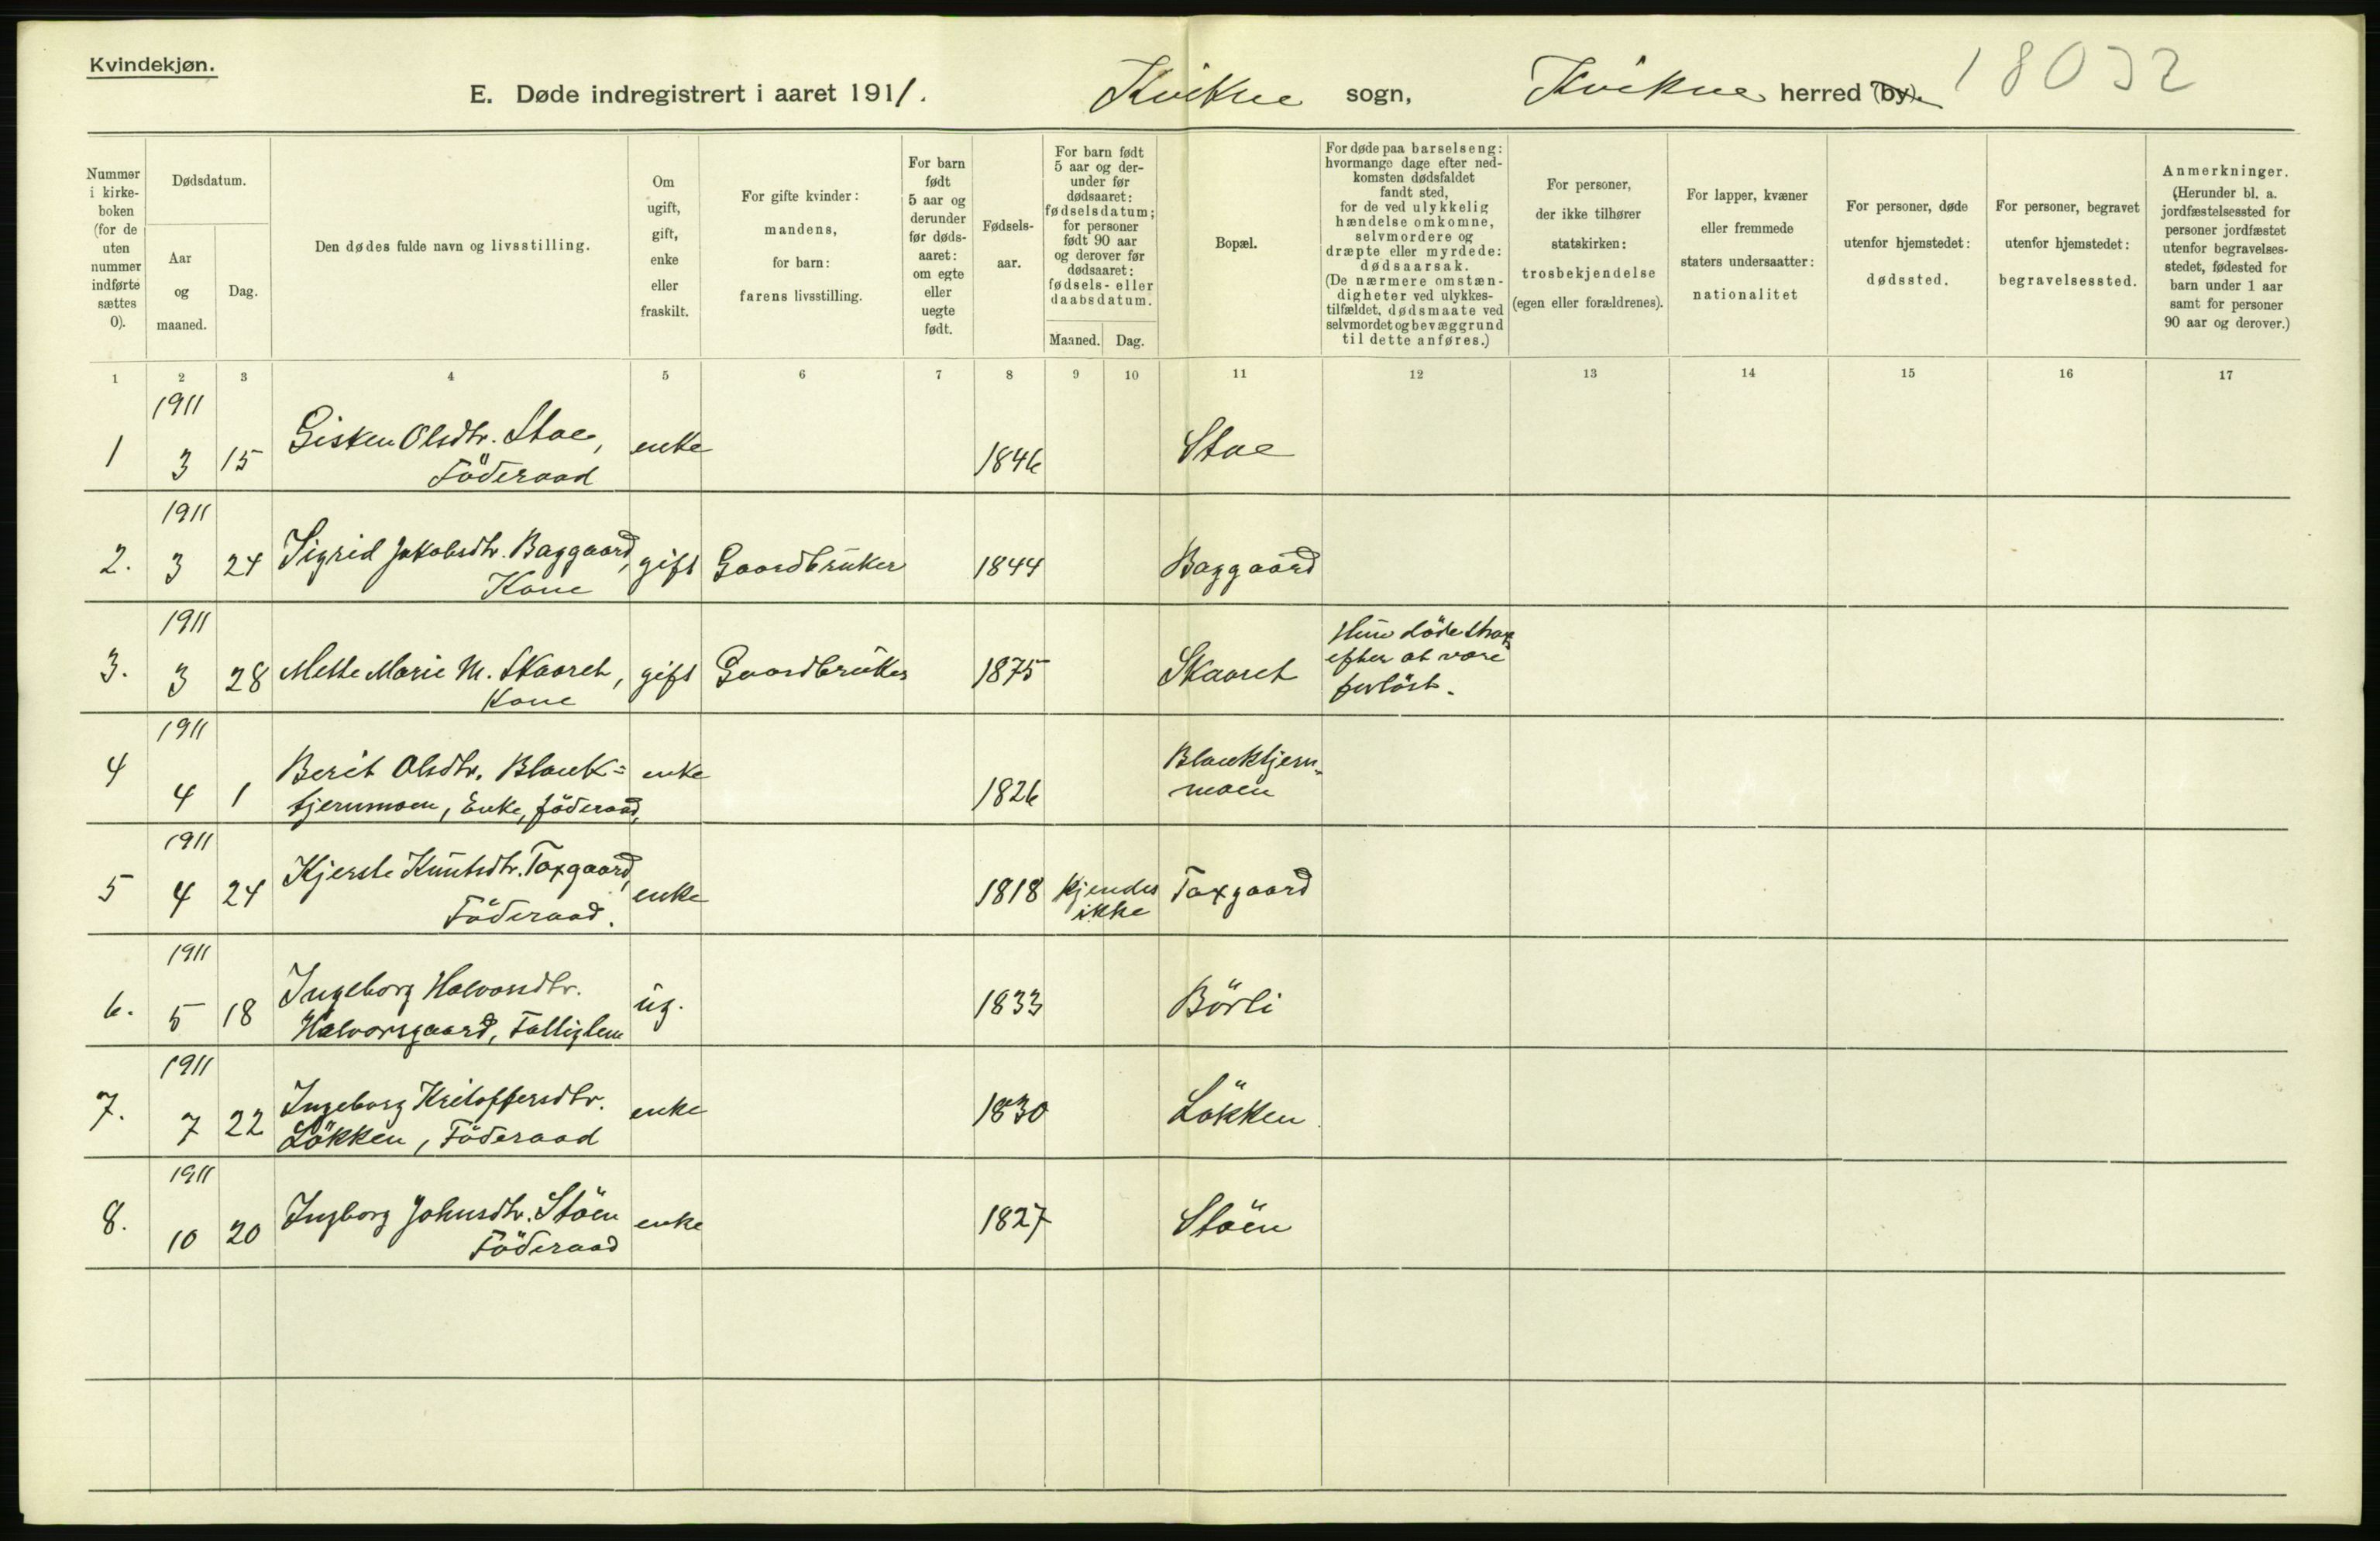 Kvindekjøn.
E. Døde indregistrert i aaret 1911. Kvikne sogn, Kvikne herred (by). 18032
Nummer i kirkeboken (for de uten nummer indførte sættes 0).
Dødsdatum.
Aar og maaned.
Dag.
Den dødes fulde navn og livsstilling.
Om ugift, gift, enke eller fraskilt.
For gifte kvinder: mandens, for barn: farens livsstilling.
For barn født 5 aar og derunder før dødsaaret: om egte eller uegte født.
Fødselsaar.
For barn født 5 aar og derunder før dødsaaret: fødselsdatum; for personer født 90 aar og derover før dødsaaret: fødsels- eller daabsdatum.
Maaned. Dag.
Bopæl.
For døde paa barselseng: hvormange dage efter nedkomsten dødsfaldet fandt sted, for de ved ulykkelig hændelse omkomne, selvmordere og dræpte eller myrdede: dødsaarsak. (De nærmere omstændigheter ved ulykkestilfældet, dødsmaate ved selvmordet og bevæggrund til dette anføres.)
For personer, der ikke tilhører statskirken: trosbekjendelse (egen eller forældrenes).
For lapper, kvæner eller fremmede staters undersaatter: nationalitet
For personer, døde utenfor hjemstedet: dødssted.
For personer, begravet utenfor hjemstedet: begravelsessted.
Anmerkninger. (Herunder bl. a. jordfæstelsessted for personer jordfæstet utenfor begravelsesstedet, fødested for barn under 1 aar samt for personer 90 aar og derover.)
1 2 3 4 5 6 7 8 9 10 11 12 13 14 15 16 17
1911
1 3 15 Gisken Olsdtr. Stae, enke 1846 Stae
Föderaad
1911
2. 3 24 Sigrid Jakobsdtr. Baggaard, gift Gaardbruker 1844 Baggaard
Kone
1911
3. 3 28 Mette Marie M. Skaaret, gift Gaardbruker 1875 Skaaret Hun döde strax
efter at være
forlöst.
Kone
1911
4 4 1 Berit Olsdtr. Blank= enke 1826 Blanktjern-
tjernmoen, Enke, föderaad, moen
1911
5 4 24 Kjerste Knutsdtr. Taxgaard, enke 1818 Kjendes ikke Taxgaard
Föderaad.
1911
6. 5 18 Ingeborg Halvorsdtr. ug. 1833 Börli
Halvorsgaard, Fattiglem
1911
7. 7 22 Ingeborg Kristoffersdtr. enke 1830 Lökken
Lökken, Föderaad
1911
8. 10 20 Ingborg Johnsdtr. Stöen enke 1827 Stöen
Föderaad